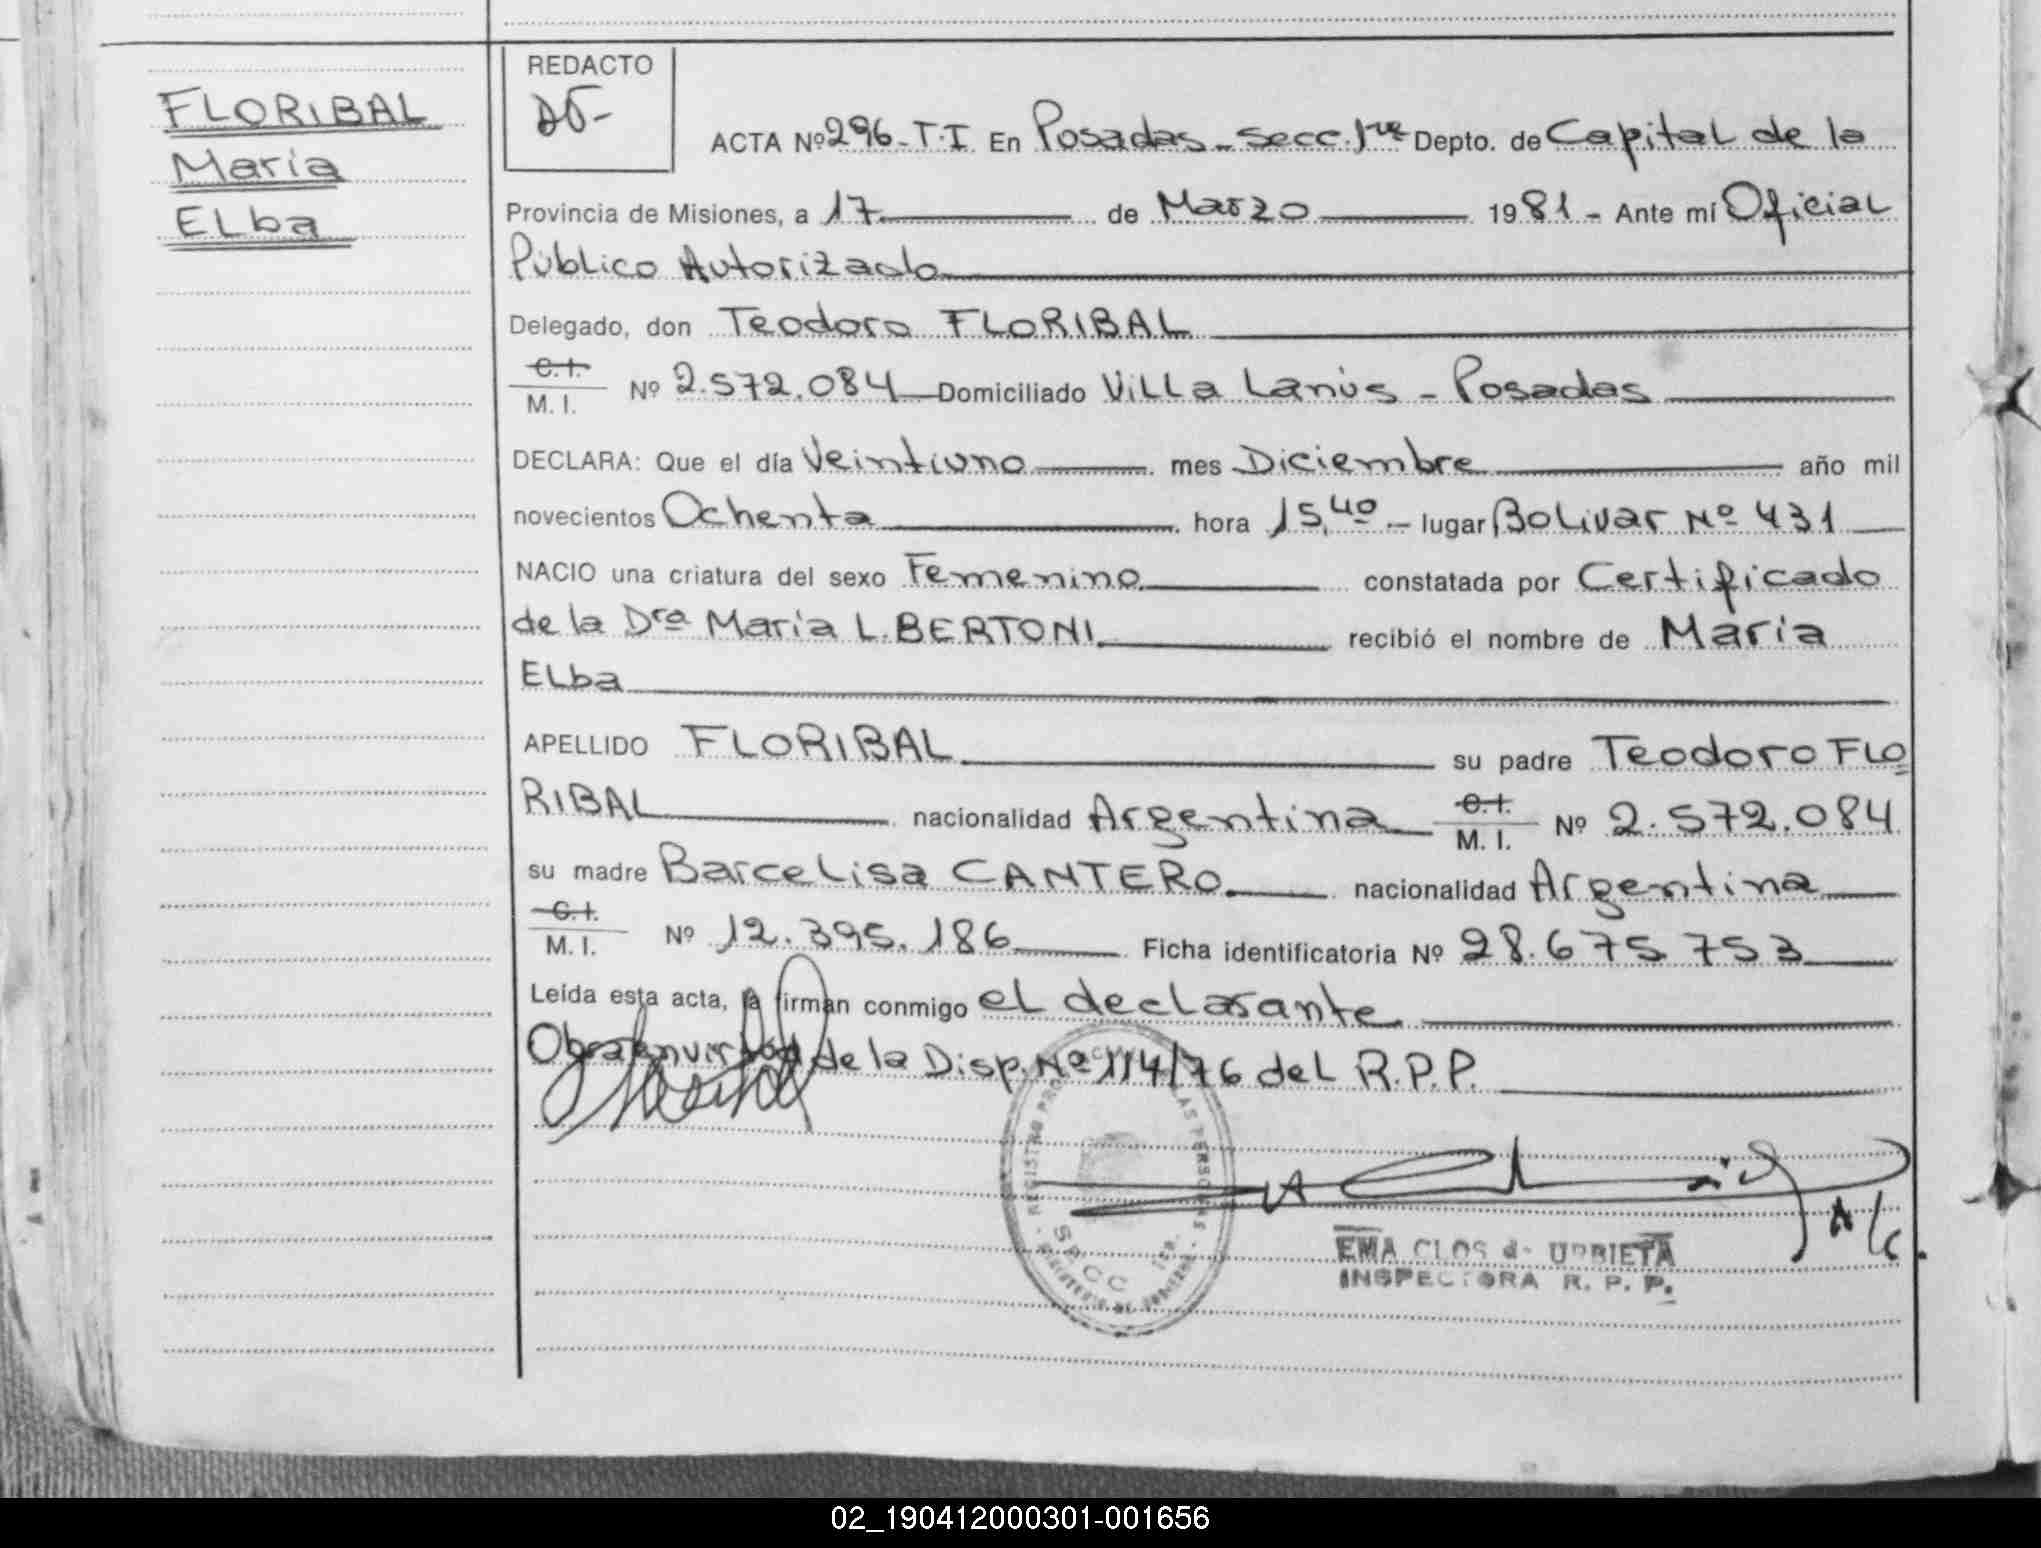 FLORIBAL
María
ELba
REDACTO
ACTA Nº 296-T.I En Posadas - secc. 1ra Depto. de Capital de la
Provincia de Misiones, a 17 de Marzo 1981 - Ante mí Oficial
Público Autorizado
Delegado, don Teodoro FLORIBAL
C.I.
M. I. Nº 2.572.084 Domiciliado Villa Lanús - Posadas
DECLARA: Que el día Veintiuno mes Diciembre año mil
novecientos Ochenta hora 15,40 - lugar Bolivar Nº 431
NACIO una criatura del sexo Femenino constatada por Certificado
de la Dra María L. BERTONI recibió el nombre de María
ELba
APELLIDO FLORIBAL su padre Teodoro FLO
RIBAL nacionalidad Argentina C.I. M. I. Nº 2.572.084
su madre Barcelisa CANTERO nacionalidad Argentina
C.I.
M. I. Nº 12.395.186 Ficha identificatoria Nº 28.675.753
Leída esta acta, la firman conmigo el declarante
de la Disp. Nº 114/76 del R.P.P.
EMA CLOS de URRIETA
INSPECTORA R. P. P.
02_190412000301-001656